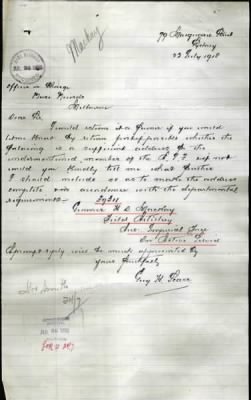 Mackay
79 Macquarie Street
Sydney
23 July 1918
Officer in Charge
Base Records
Melbourne
Dear Sir
I would esteem it a favour if you would
let me know by return post, if possible whether the
following is a sufficient address of the
undermentioned member of the A.I.F. if not
would you kindly tell me what further
I should include so as to make the address
complete & in accordance with the departmental
requirements:-
Gunner H D Mackay
Field Artillery
Aus. Imperial Force
On Active Service
A prompt reply will be much appreciated by
yours faithfully
Guy H.